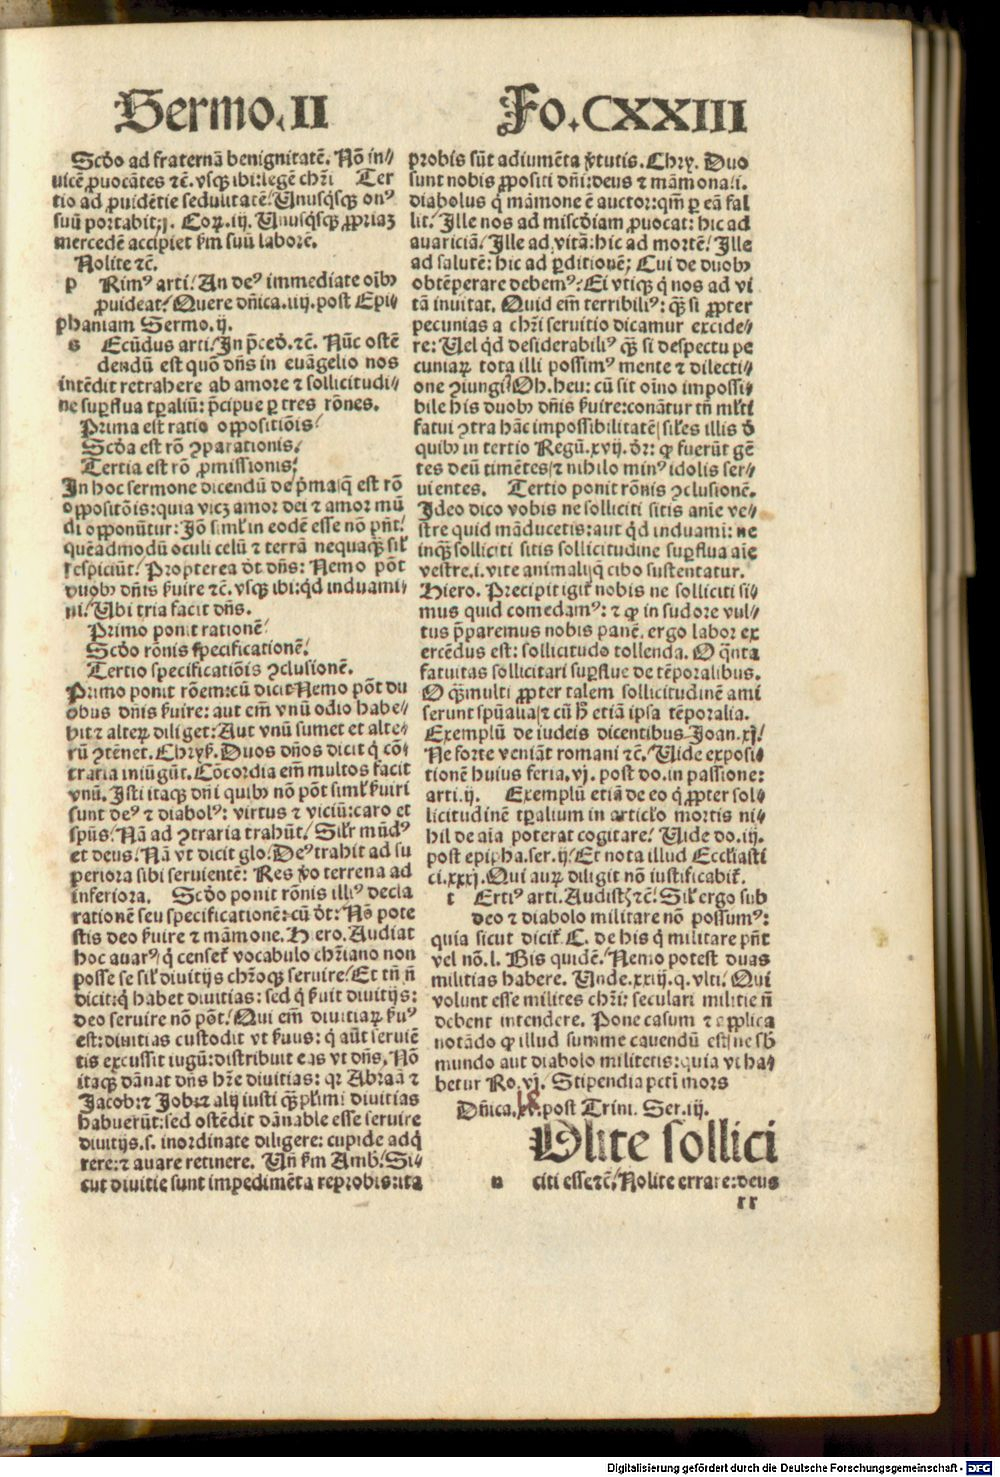 Sermo.II
Fo.CXXIII
Scďo ad fraternā benignitatē. Nō in⸗
uicē ꝓuocātes ⁊ē. vsqꝫ ibi:legē chr̄i Ter
tio ad ꝓuidētie sedulitatē/Unusq̇sqꝫ onꝰ
suū portabit:j. Coꝝ.iij. Unusq̇sqꝫ ꝓpriaꝫ
mercedē accipiet ẜm suū laborē.
Nolite ⁊ē.
p Rimꝰ arti/An deꝰ immediate oībꝫ
ꝓuideat/Quere dn̄ica.iiij.post Epi⸗
phaniam Sermo.ij.
s Ecūdus arti/In p̄ceď.⁊ē. Nūc ostē
dendū est quō dn̄s in euāgelio nos
intēdit retrahere ab amore ⁊ sollicitudi⸗
ne suꝑflua tꝑaliū: p̄cipue ꝑ tres rōnes.
Prima est ratio oppositiōis/
Scďa est rō ꝯparationis/
Tertia est rō ꝓmissionis/
In hoc sermone dicendū de p̓ma/q̄ est rō
oppositōis:quia vicꝫ amor dei ⁊ amor mū
di opponūtur: Iō siml̓ in eodē esse nō pn̄t/
quēadmodū oculi celū ⁊ terrā nequaqꝫ sil̓
respiciūt/ Propterea ďt dn̄s: Nemo pōt
duobꝫ dn̄is ẜuire ⁊ē. vsqꝫ ibi:qď induami⸗
ni/Ubi tria facit dn̄s.
Primo ponit rationē/
Scďo rōnis specificationē/
Tertio specificatiōis ꝯclusionē.
Primo ponit rōem:cū dicit Nemo pōt du
obus dn̄is ẜuire: aut em̄ vnū odio habe⸗
bit ⁊ alteꝝ diliget: Aut vnū sumet et alte⸗
rū ꝯtēnet. Chryẜ. Duos dn̄os dicit q̇ cō⸗
traria iniūgūt. Cōcordia em̄ multos facit
vnū. Isti itaqꝫ dn̄i quibꝫ nō pōt siml̓ ẜuiri
sunt deꝰ ⁊ diabolꝰ: virtus ⁊ viciū:caro et
spūs/Nā ad ꝯtraria trahūt/ Silr̓ mūdꝰ
et deus/Nā vt dicit glo. Deꝰ trahit ad su
periora sibi seruientē: Res v̓o terrena ad
inferiora. Scďo ponit rōnis illiꝰ decla
rationē seu specificationē:cū ďt: Nō pote
stis deo ẜuire ⁊ māmone. Hiero. Audiat
hoc auarꝰ/ q̇ censet̓ vocabulo chr̄iano non
posse se sil̓ diuitijs chr̄oqꝫ seruire/Et tn̄ n̄
dicit:q̇ habet diuitias: sed q̇ ẜuit diuitijs:
deo seruire nō pōt/Qui em̄ diuitiaꝝ ẜuꝰ
est:diuitias custodit vt ẜuus: q̇ aūt seruiē
tis excussit iugū:distribuit eas vt dn̄s. Nō
itaqꝫ dānat dn̄s hr̄e diuitias: qr̄ Abraā ⁊
Jacob:⁊ Job:⁊ alij iusti qꝫpl̓imi diuitias
habuerūt:sed ostēdit dānable esse seruire
diuitijs.s. inordinate diligere: cupide adq̇
rere:⁊ auare retinere. Un̄ ẜm Amb. Si⸗
cut diuitie sunt impedimēta reprobis:ita
probis sūt adiumēta v̓tutis. Chry. Duo
sunt nobis ꝓpositi dn̄i:deus ⁊ māmona.i.
diabolus q̇ māmone ē auctor:qm̄ ꝑ eā fal
lit. Ille nos ad miscďiam ꝓuocat: hic ad
auariciā/Ille ad vitā:hic ad mortē/Ille
ad salutē: hic ad ꝑditionē; Cui de duobꝫ
obtēperare debemꝰ/Ei vtiqꝫ q̇ nos ad vi
tā inuitat. Quid em̄ terribiliꝰ: qꝫ si ꝓpter
pecunias a chr̄i seruitio dicamur excide⸗
re: Uel qď desiderabiliꝰ qꝫ si despectu pe
cuniaꝝ tota illi possimꝰ mente ⁊ dilecti⸗
one ꝯiungi/Oh.heu: cū sit oīno impossi⸗
bile his duobꝫ dn̄is ẜuire:conātur tn̄ ml̓ti
fatui ꝯtra hāc impossibilitatē/siles illis ď
quibꝫ in tertio Regū.xvij. ďr: ꝙ fuerūt gē
tes deū timētes/⁊ nihilo minꝰ idolis ser⸗
uientes. Tertio ponit rōnis ꝯclusionē.
Ideo dico vobis ne solliciti sitis anīe ve⸗
stre quid māducetis:aut qď induami: ne
inqꝫ solliciti sitis sollicitudine suꝑflua aīe
vestre.i.vite animali/q̄ cibo sustentatur.
Hiero. Precipit̓ igit̓ nobis ne solliciti si⸗
mus quid comedamꝰ: ⁊ ꝙ in sudore vul⸗
tus p̄paremus nobis panē. ergo labor ex
ercēdus est: sollicitudo tollenda. O q̄nta
fatuitas sollicitari suꝑflue de tēporalibus.
O qꝫmulti ꝓpter talem sollicitudinē ami
serunt spūalia/⁊ cū h̄ etiā ipsa tēporalia.
Exemplū de iudeis dicentibus Joan.xj/
Ne forte veniāt romani ⁊ē. Uide exposi⸗
tionē huius feria.vj. post do.in passione:
arti.ij. Exemplū etiā de eo q̇ ꝓpter sol⸗
licitudinē tꝑalium in articl̓o mortis ni⸗
hil de aīa poterat cogitare/ Uide do.iij.
post epipha.ser.ij/Et nota illud Ecclīasti
ci.xxxj.Qui auꝝ diligit nō iustificabit̓.
t Ertiꝰ arti. Audistꝭ ⁊ē/Sil̓ ergo sub
deo ⁊ diabolo militare nō possumꝰ:
quia sicut dicit̓ C. de his q̇ militare pn̄t
vel nō.l. Bis quidē/Nemo potest duas
militias habere. Unde.xxiij.q.vlti. Qui
volunt esse milites chr̄i: seculari militie n̄
debent intendere. Pone casum ⁊ applica
notādo ꝙ illud summe cauendū est/ne sb̄
mundo aut diabolo militetis:quia vt ha⸗
betur Ro.vj. Stipendia pctī mors
Dn̄ica. post Trini. Ser.iij.
Olite sollici
n citi esse⁊ē/Nolite errare:deus
rr
Digitalisierung gefördert durch die Deutsche Forschungsgemeinschaft - DFG